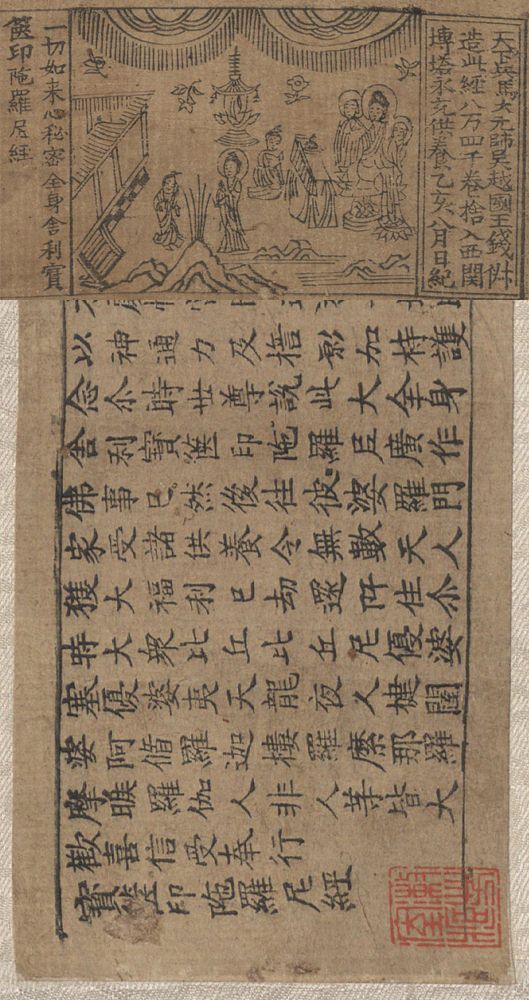 天下兵馬大元帥吳越國王錢俶
造此經八万四千卷捨入西関
塼塔永充供養乙亥八月日紀
一切如来心秘密全身舍利寶
篋印陁羅尼經
以神通力及加持護
念尒時世尊說此大全身
舍利寶篋印陁羅尼廣作
佛事已然後往彼婆羅門
家受諸供養令無數天人
獲大福利已却還所住尒
時大衆比丘比丘尼優婆
塞優婆夷天龍夜叉揵闥
婆阿脩羅迦樓羅緊那羅
摩睺羅伽人非人等皆大
歡喜信受奉行
寶篋印陁羅尼經